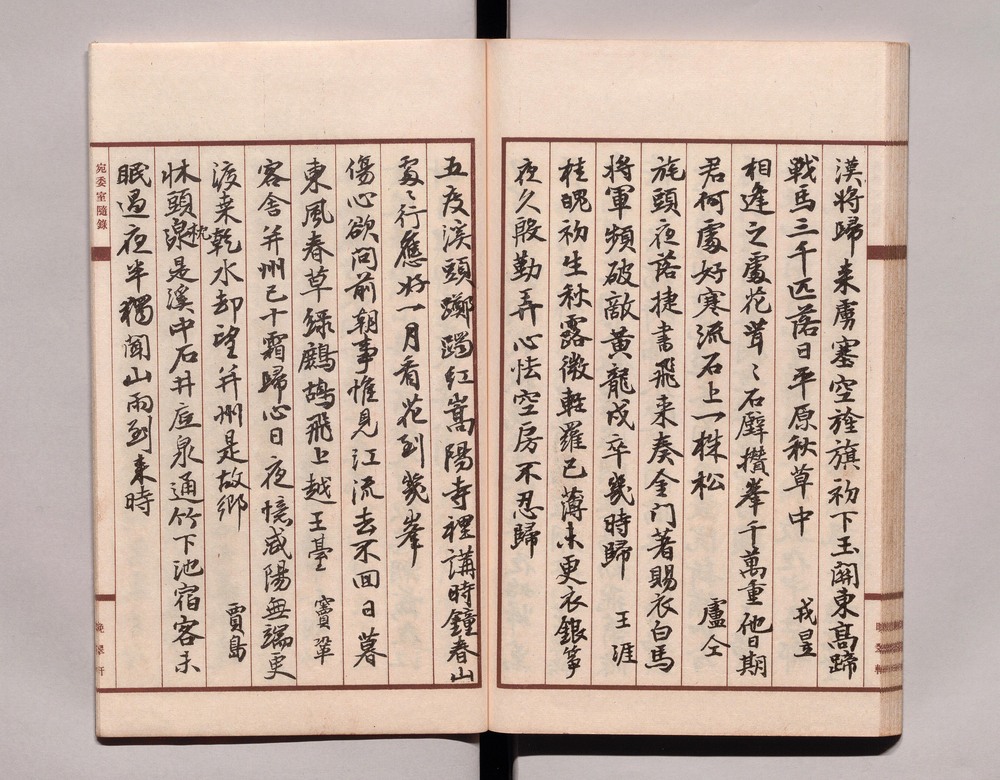 漢將歸来虜塞空旌旗初下玉關東髙蹄
戰馬三千匹落日平原秋草中 戎昱
相逢之處花茸〻石壁攢峯千萬重他日期
君何處好寒流石上一株松 盧仝
旄頭夜落捷書飛来奏金门著賜衣白馬
將軍頻破敵黄龍戍卒幾時歸 王涯
桂魄初生秋露微輕羅已薄未更衣銀箏
夜久殷勤弄心怯空房不忍歸
五度溪頭躑躅红嵩陽寺裡講時鐘春山
處〻行應好一月看花到幾峯
傷心欲问前朝事惟見江流去不回日暮
東風春草緑鷓鴣飛上越王臺 竇鞏
客舍并州已十霜歸心日夜憶咸陽無端更
渡桑乾水却望并州是故鄉 賈島
床頭枕是溪中石井底泉通竹下池宿客未
眠過夜半獨闻山雨到来時
宛委室隨錄
晚翠軒